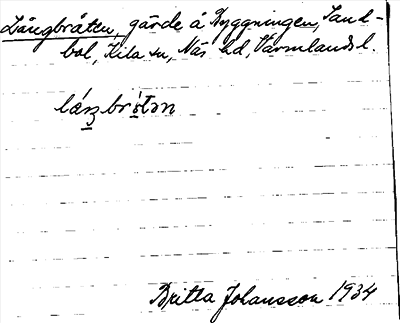 Långbråten, gärde å Byggningen, Sand-
bol, Kila sn, Näs hd, Värmlands l.
Britta Johansson 1934